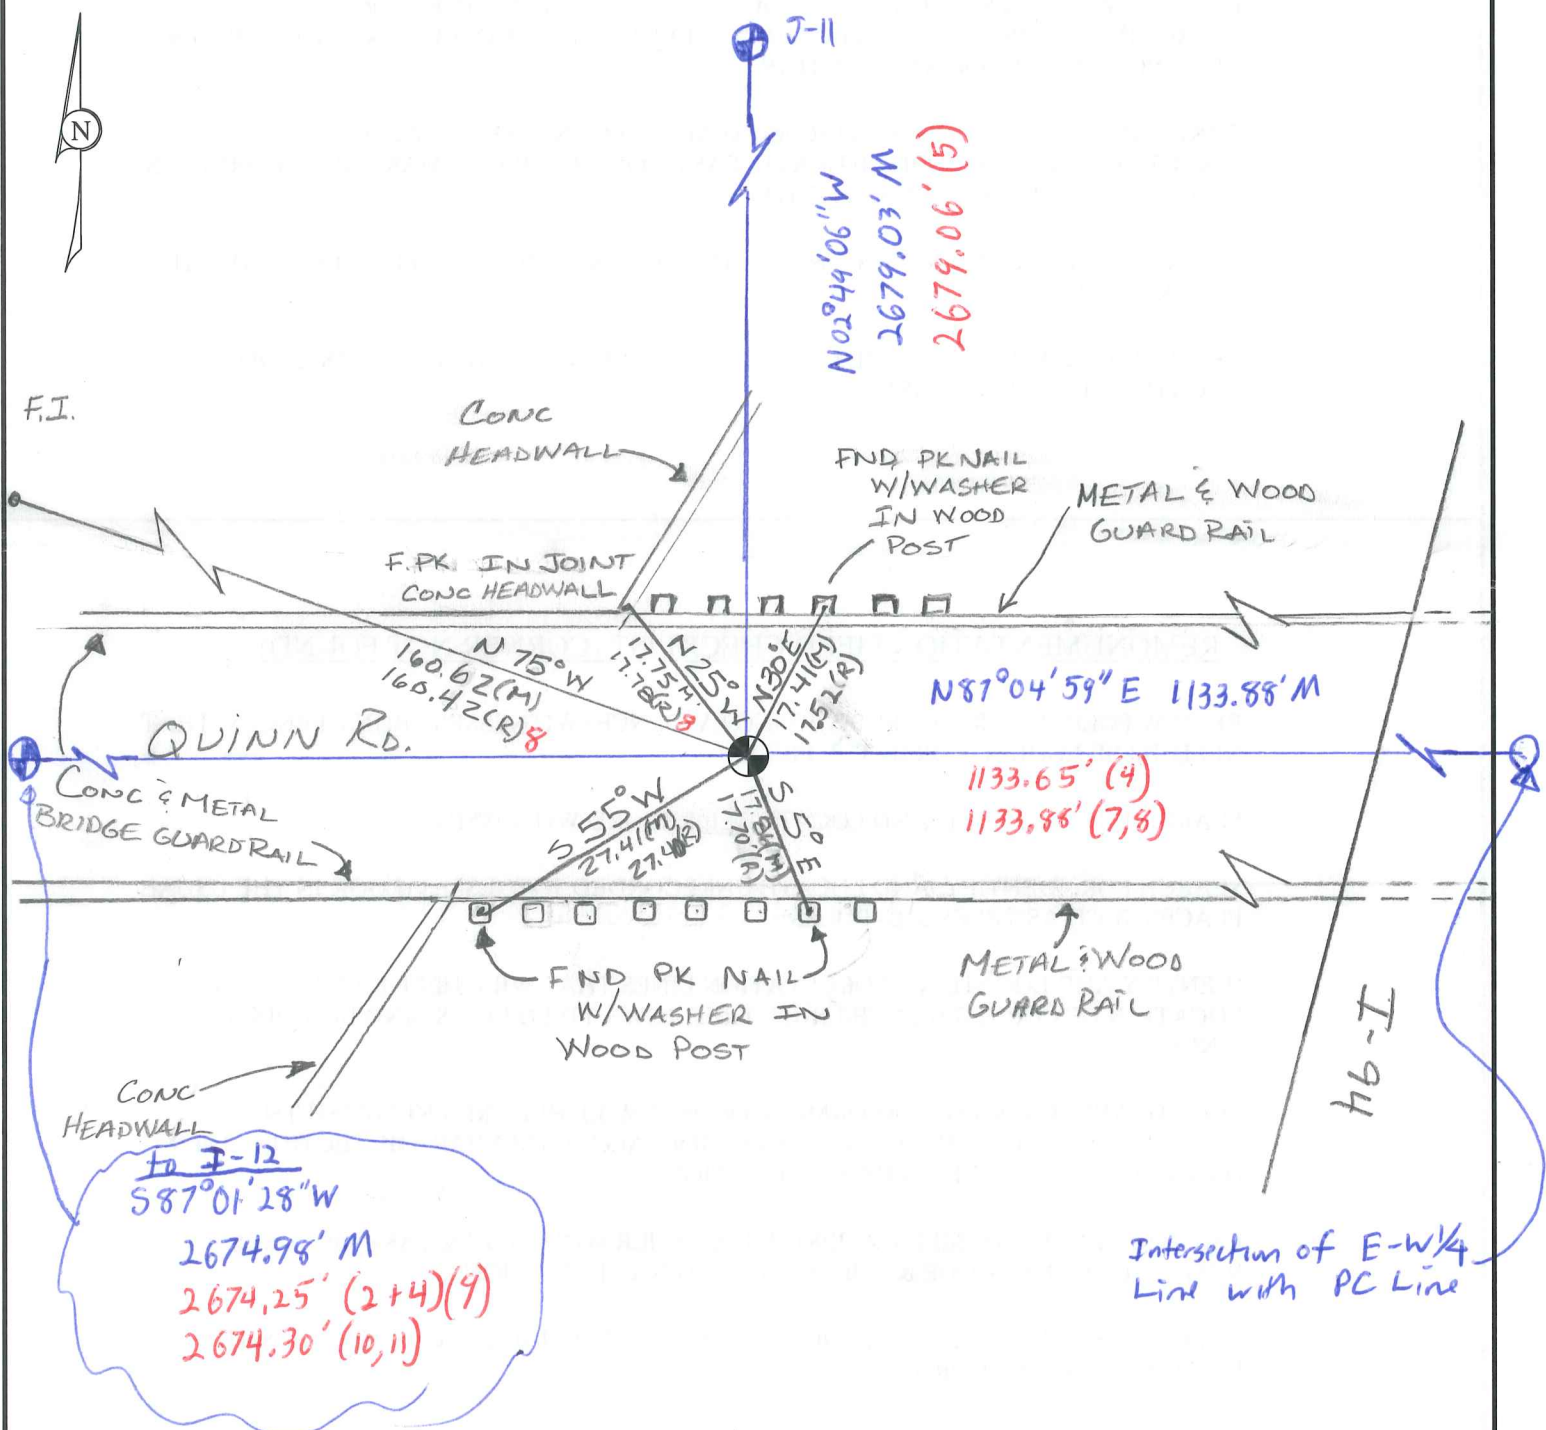 J-11
N
N02°44'06"W
2679.03' M
2679.06' (5)
F.I.
CONC
HEADWALL
FND PK NAIL
W/WASHER
IN WOOD
POST
METAL & WOOD
GUARD RAIL
F.PK IN JOINT
CONC HEADWALL
N 75° W
160.62(M)
160.42(R) 8
N25°W
17.75 M
17.78(R) 8
N30°E
17.41(M)
17.52(R)
N87°04'59" E 1133.88' M
QUINN RD.
1133.65' (4)
1133.88' (7,8)
CONC & METAL
BRIDGE GUARD RAIL
S 55° W
27.41(M)
S 5° E
17.70'(R)
FND PK NAIL
W/WASHER IN
WOOD POST
METAL & WOOD
GUARD RAIL
I-94
CONC
HEADWALL
to I-12
S87°01'28"W
2674.98' M
2674.25' (2+4)(9)
2674.30' (10,11)
Intersection of E-W 1/4
Line with PC Line